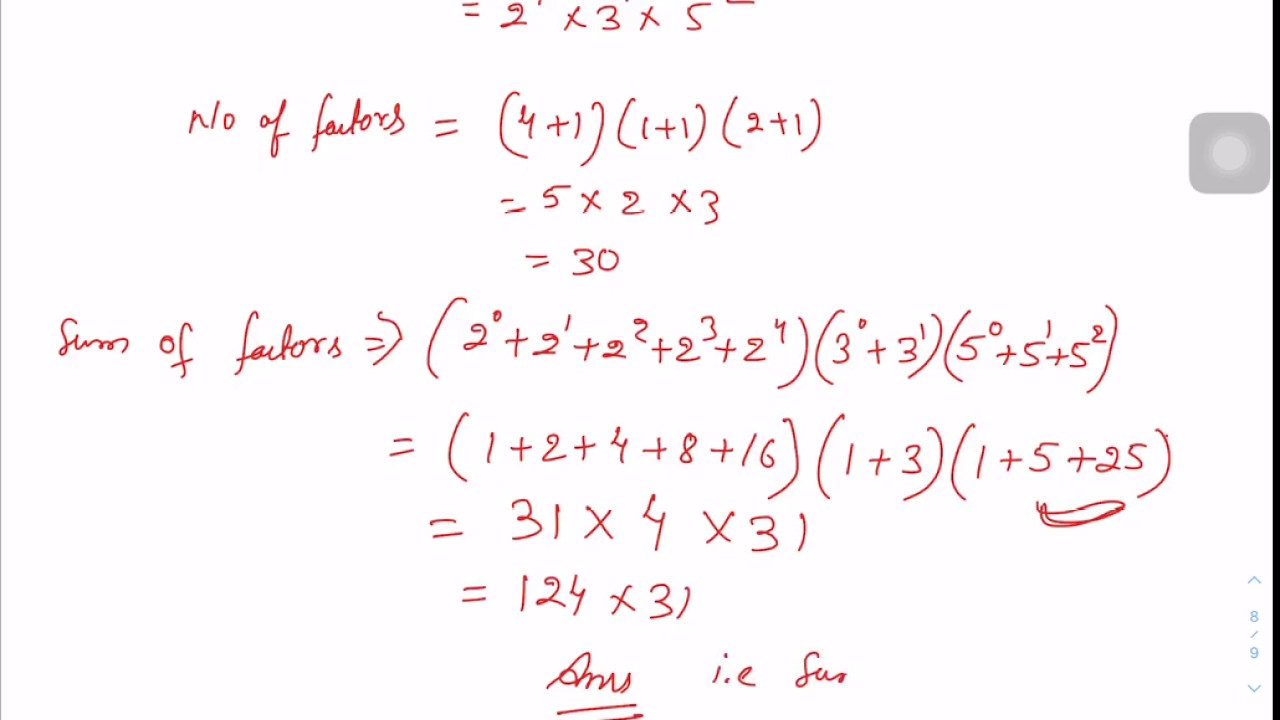 = 2 × 3 × 5
n/o of factors = (4+1)(1+1)(2+1)
= 5 × 2 × 3
= 30
Sum of factors ⇒ (2⁰+2¹+2²+2³+2⁴)(3⁰+3¹)(5⁰+5¹+5²)
= (1+2+4+8+16)(1+3)(1+5+25)
= 31 × 4 × 31
= 124 × 31
Ans i.e Sum
8
/
9